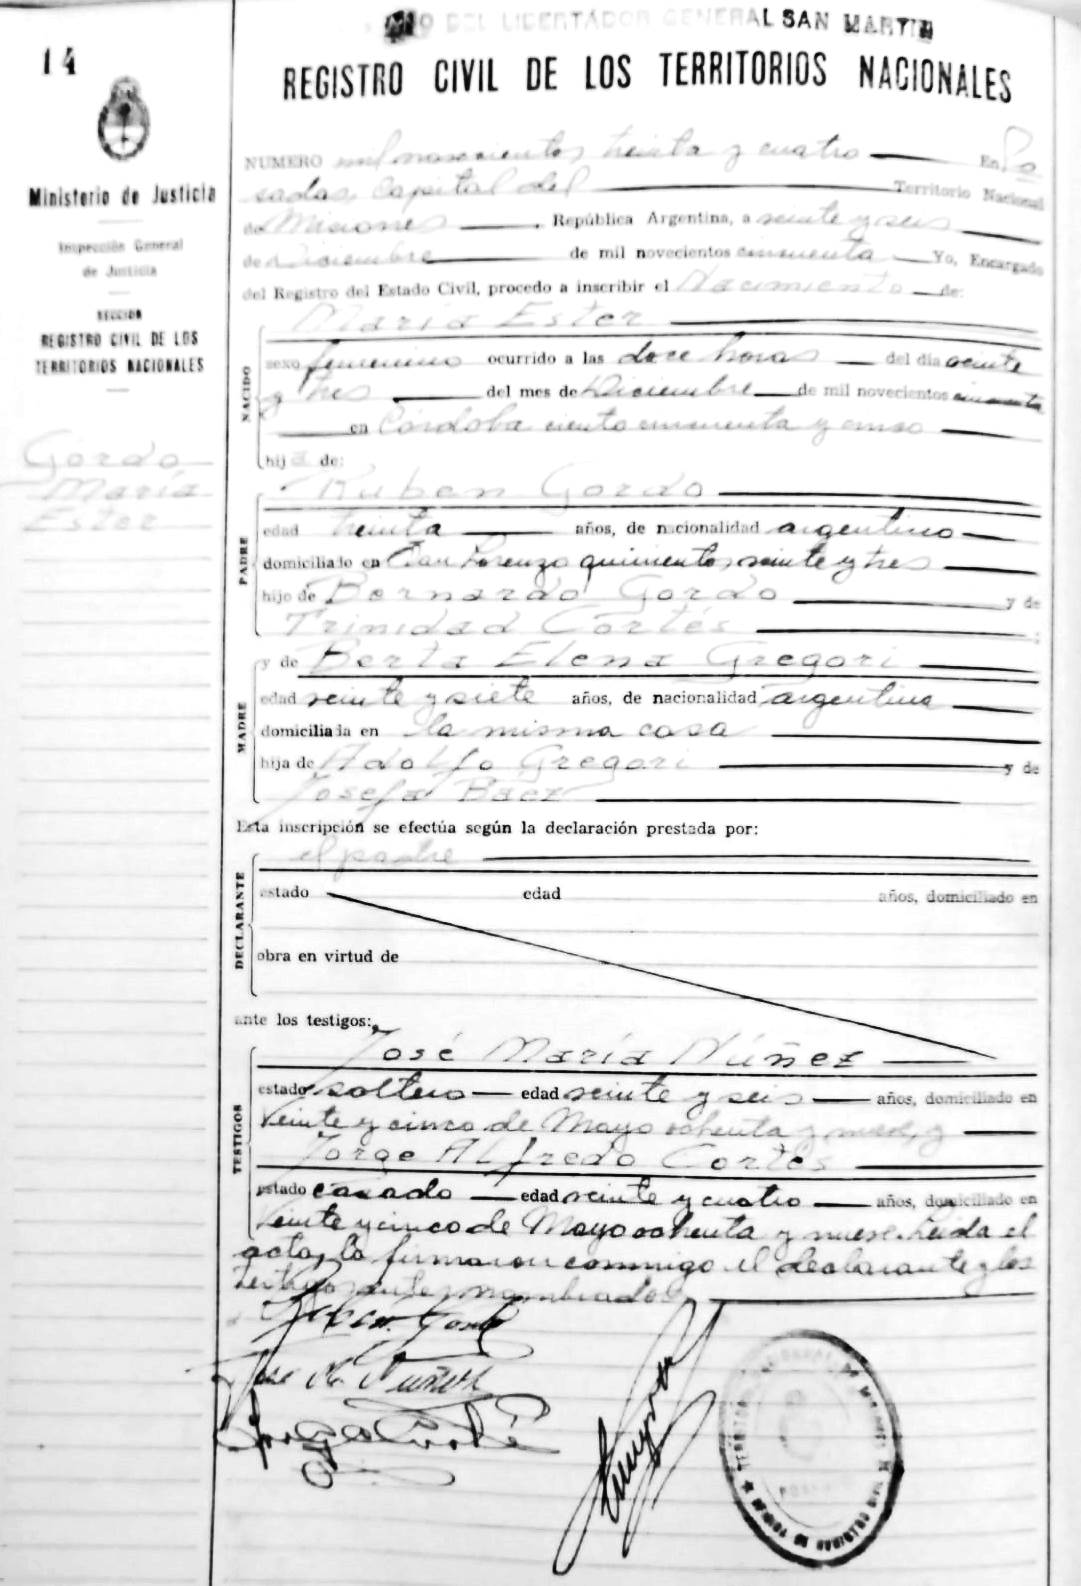 DEL LIBERTADOR GENERAL SAN MARTIN
14
REGISTRO CIVIL DE LOS TERRITORIOS NACIONALES
Ministerio de Justicia
Inspección General
de Justicia
SECCION
REGISTRO CIVIL DE LOS
TERRITORIOS NACIONALES
Gordo
María
Ester
NUMERO mil novecientos treinta y cuatro En Po
sadas, Capital del Territorio Nacional
de Misiones, República Argentina, a veinte y seis
de Diciembre de mil novecientos cincuenta Yo, Encargado
del Registro del Estado Civil, procedo a inscribir el Nacimiento de:
NACIDO
María Ester
sexo femenino ocurrido a las doce horas del día veinte
y tres del mes de Diciembre de mil novecientos cincuenta
en Córdoba ciento cincuenta y cinco
hija de:
PADRE
Ruben Gordo
edad treinta años, de nacionalidad argentino
domiciliado en San Lorenzo quinientos veinte y tres
hijo de Bernardo Gordo y de
Trinidad Cortés ;
MADRE
y de Berta Elena Gregori
edad veinte y siete años, de nacionalidad argentina
domiciliada en la misma casa
hija de Adolfo Gregori y de
Josefa Baez
Esta inscripción se efectúa según la declaración prestada por:
DECLARANTE
el padre
estado edad años, domiciliado en
obra en virtud de
ante los testigos:
TESTIGOS
José María Núñez
estado soltero edad veinte y seis años, domiciliado en
Veinte y cinco de Mayo ochenta y nueve, y
Jorge Alfredo Cortés
estado casado edad veinte y cuatro años, domiciliado en
Veinte y cinco de Mayo ochenta y nueve. Leida el
acta, la firmaron conmigo el declarante y los
testigos antes nombrados.
Ruben Gordo
Jose M. Nuñez
Jorge Cortés